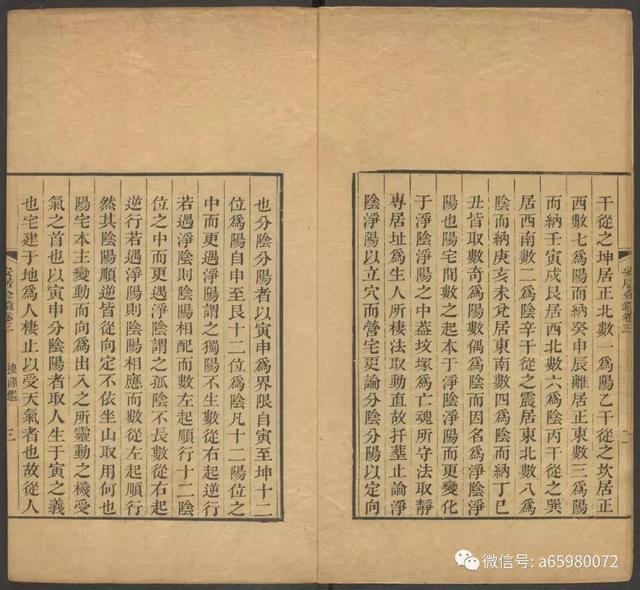 干從之坤居正北數一爲陽乙干從之坎居正
西數七爲陽而納癸申辰離居正東數三爲陽
而納壬寅戌艮居西北數六爲陰丙干從之巽
居西南數二爲陰辛干從之震居東北數八爲
陰而納庚亥未兌居東南數四爲陰而納丁巳
丑皆取數奇爲陽數偶爲陰而因名爲淨陰淨
陽也陽宅間數之起本于淨陰淨陽而更變化
于淨陰淨陽之中葢坟塚爲亡魂所守法取靜
專居址爲生人所棲法取動直故扦塟止論淨
陰淨陽以立穴而營宅更論分陰分陽以定向
也分陰分陽者以寅申爲界限自寅至坤十二
位爲陽自申至艮十二位爲陰凡十二陽位之
中而更遇淨陽謂之獨陽不生數從右起逆行
若遇淨陰則陰陽相配而數左起順行十二陰
位之中而更遇淨陰謂之孤陰不長數從右起
逆行若遇淨陽則陰陽相應而數從左起順行
然其陰陽順逆皆從向定不依坐山取用何也
陽宅本主變動而向爲出入之所靈動之機受
氣之首也以寅申分陰陽者取人生于寅之義
也宅建于地爲人棲止以受天氣者也故從人
卷三
三
微信号: a65980072